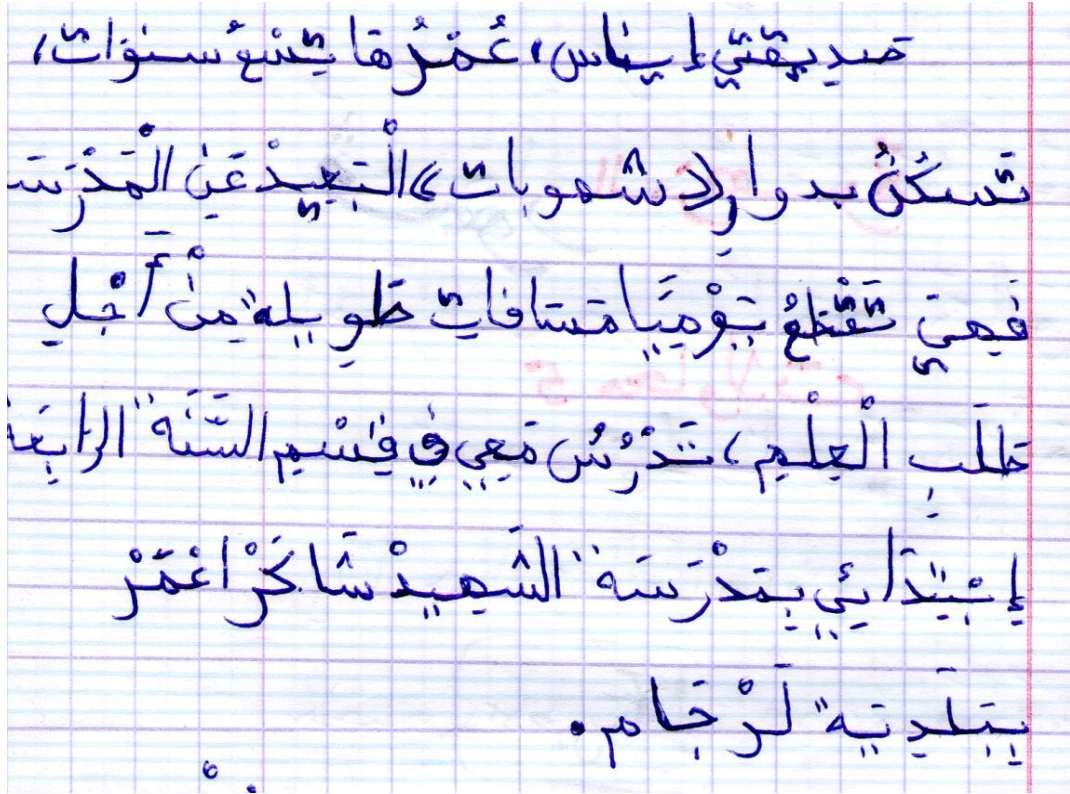 صديقتي إيناس، عُمْرُها تِسْعُ سنوات،
تَسْكُنُ بدوار «شموبات» الْبَعِيدْ عَنِ الْمَدْرَسَة
فَهِيَ تَقْطَعُ يَوْمِيًا مَسَافَاتٍ طويلة مِنْ أَجْلِ
طَلَبِ الْعِلْمِ، تَدْرُسُ مَعِي فِي قِسْمِ السَّنَة الرابِعَة
إبْتِدَائِي بِمَدْرَسَة الشَهِيدْ شَا عَمَرْ
بِبَلَدِيَة لَرْجَام.